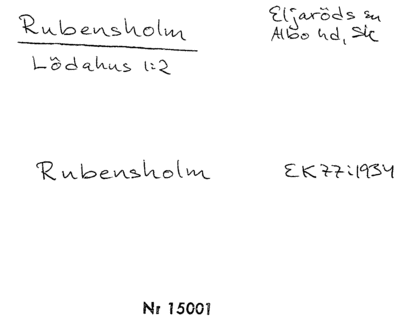 Rubensholm
Eljaröds sn
Albo hd, Sk
Lödahus 1:2
Rubensholm
EK 77:1934
Nr 15001